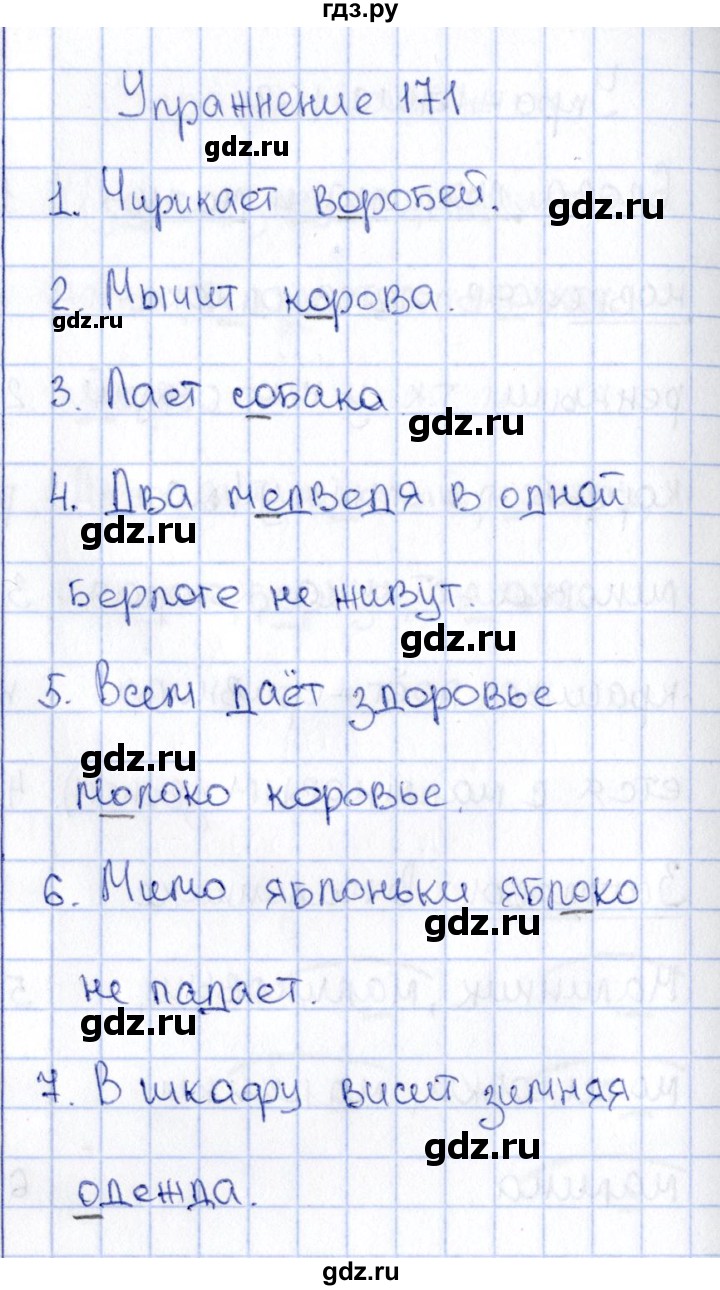 гдз.ру
Упражнение 171
gdz.ru
1. Чирикает воробей.
gdz.ru
2. Мычит корова.
gdz.ru
3. Лает собака
gdz.ru
4. Два медведя в одной
gdz.ru
берлоге не живут.
gdz.ru
5. Всем даёт здоровье
gdz.ru
молоко коровье.
6. Мимо яблоньки яблоко
gdz.ru
не падает.
gdz.ru
7. В шкафу висит зимняя
gdz.ru
одежда.
gdz.ru